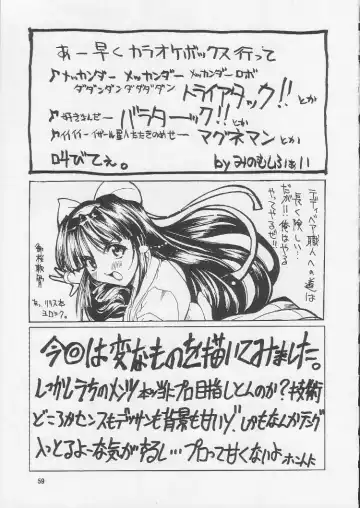 あー早くカラオケボックス行って
♪メッカンダー メッカンダー メッカンダーロボ
ダダンダンダダダダン トライアタック!!とか
♪好きなんだ― バラタ―ック!!とか
マグネマンとか
叫びてぇ。 by みのもしふぁい
テディベア職人への道は
長く険しい…
だが!!俺はやる
やってやるぜ!!
今回は変なものを描いてみました。
しかしうちのメンツ本当にプロ目指しとんのか?技術
どころかセンスもデッサンも背景も甘いゾ、しかもなんかテング
入っとるよーな気がするし…プロって甘くないよ ホント
59